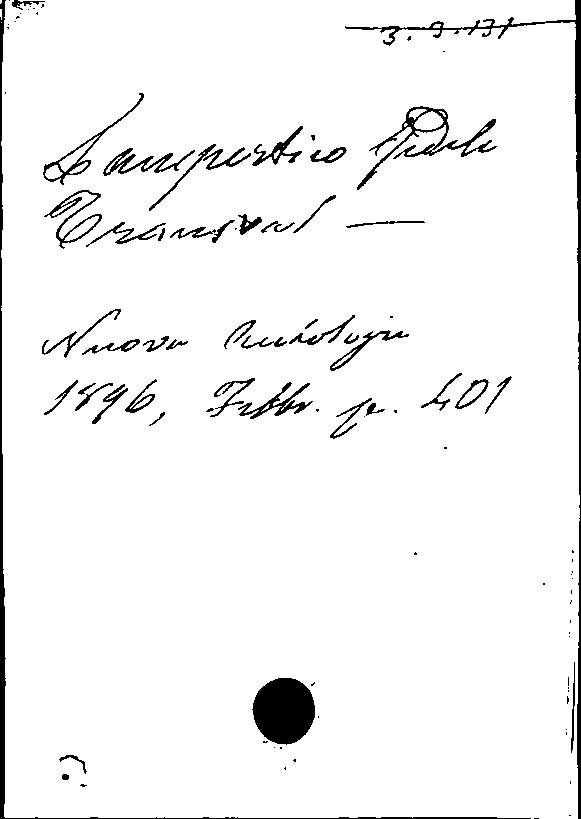 3.9.131
Lampertico Fidele
Transval —
Nuova Antologia
1896, Febbr. p. 401